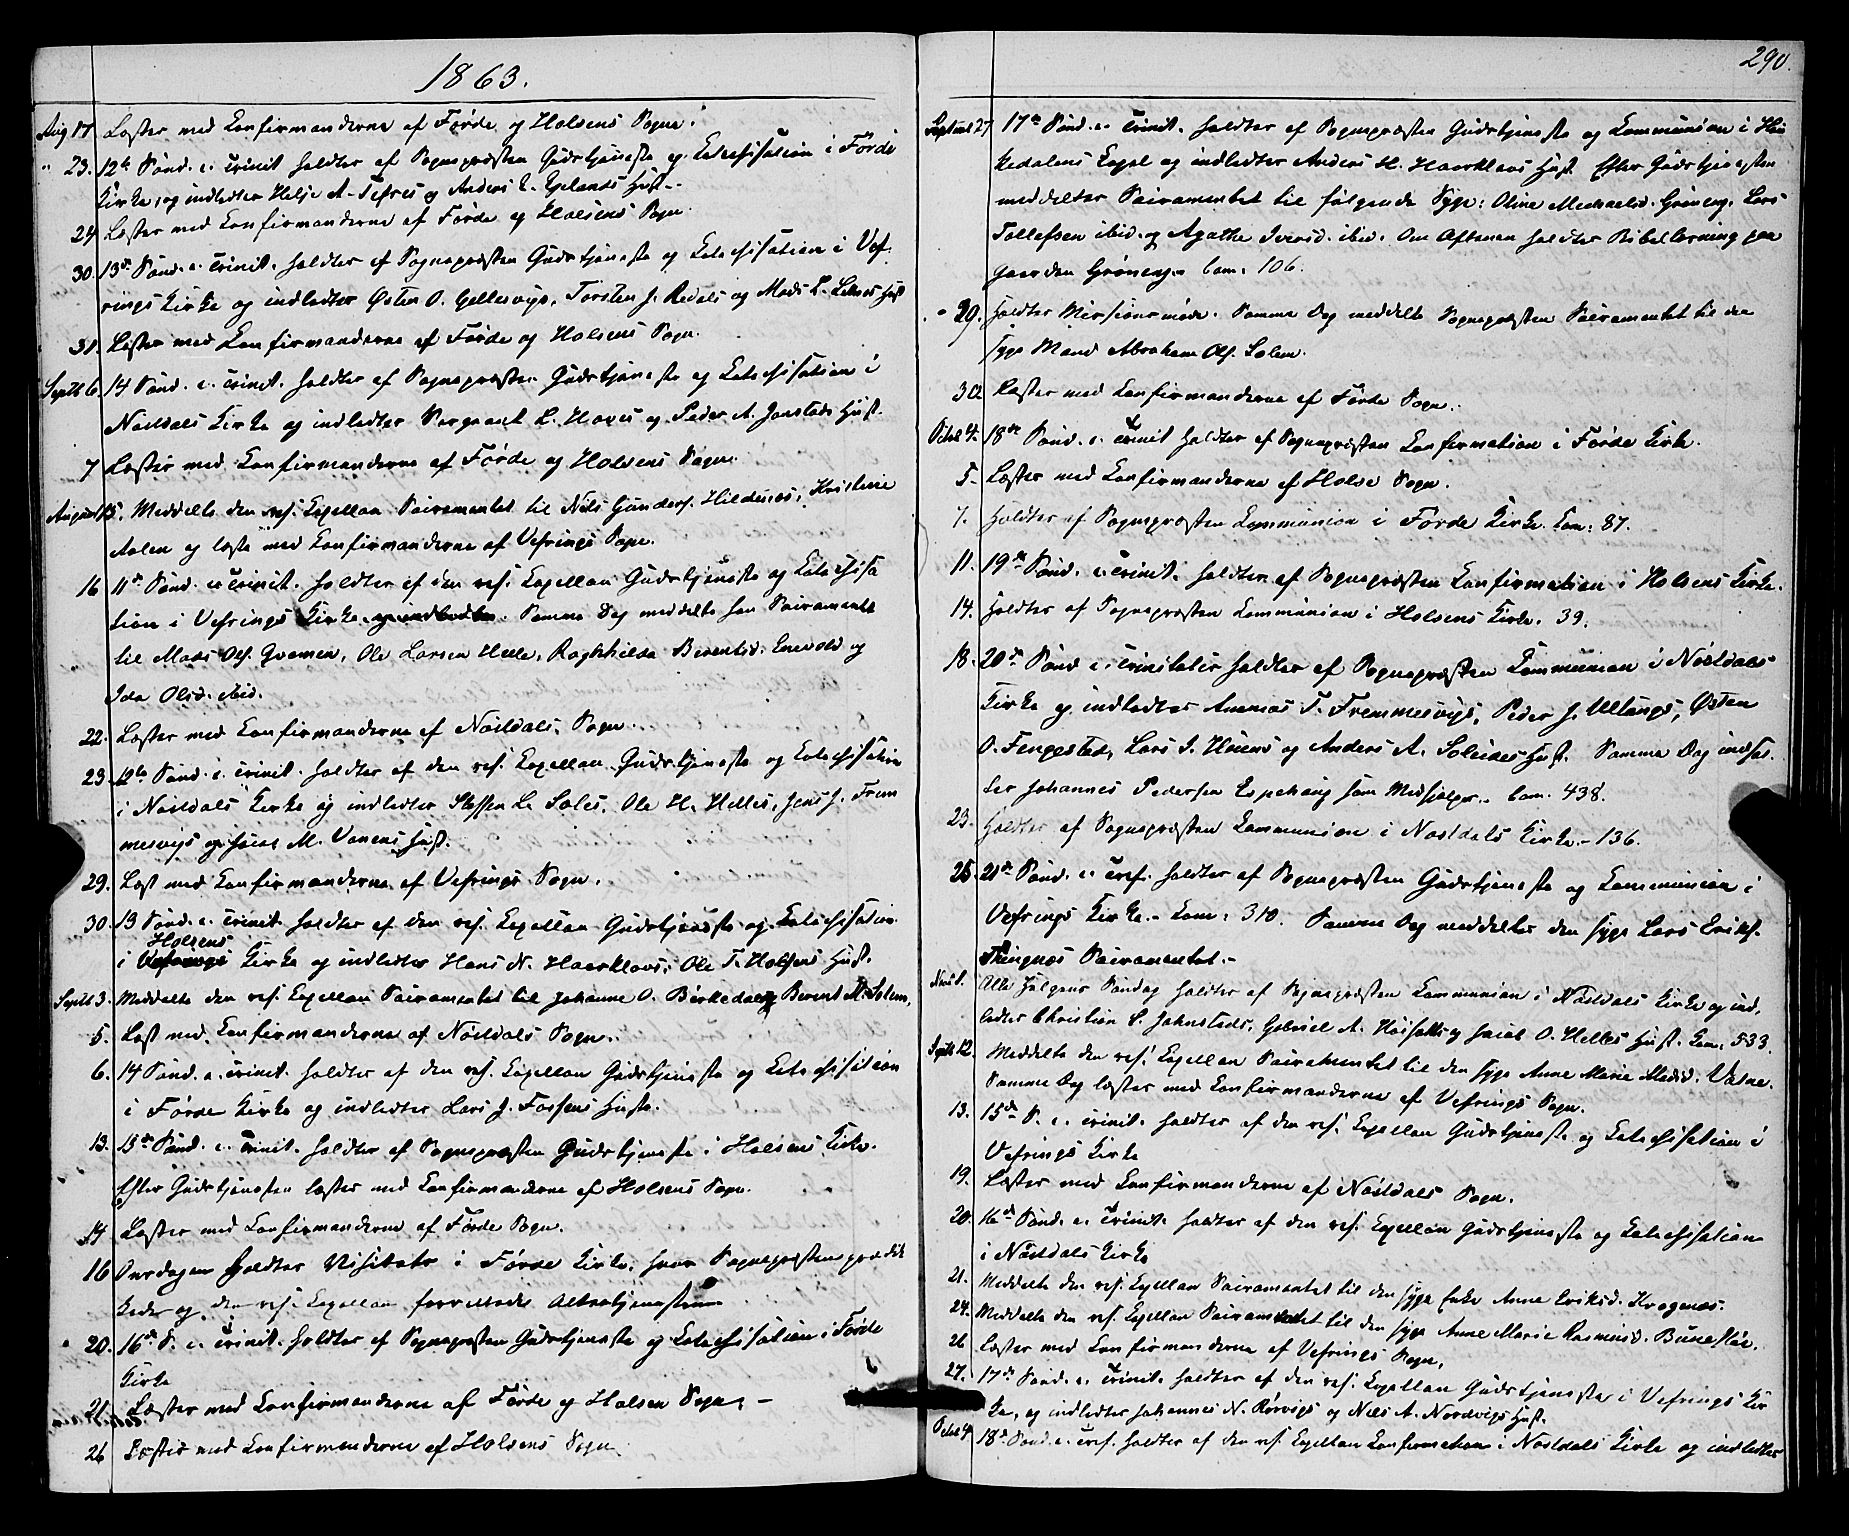 1863.
Aug 17 Læstes med Konfirmanderne af Førde og Holsens Sogne.
" 23. 12te Sønd. e. Trinit. holdtes af Sognepræsten Gudstjeneste og Katechisation i Førde
Kirke, og indledtes Helje A. Tefres og Anders E. Espelands Hust.
24 Læstes med Konfirmanderne af Førde og Holsens Sogne.
30. 13de Sønd. e. Trinit. holdtes af Sognepræsten Gudstjeneste og Katechisation i Vef-
rings Kirke og indledtes Østen O. Gellesvigs, Torsten J. Redals og Mads L. Leknes Hust
31. Læstes med Konfirmanderne af Førde og Holsens Sogn.
Septb 6. 14 Sønd. e. Trinit. holdtes af Sognepræsten Gudstjeneste og Katechisation i
Nöstdals Kirke og indledtes Sergeant L. Hoves og Peder A. Jonstads Hust.
7 Læstes med Konfirmanderne af Førde og Holsens Sogne.
August 15. Meddelte den res. Kapellan Sacramentet til Nils Gunders. Hildenes, Kristine
Aalen og læste med Konfirmanderne af Vefrings Sogn.
16 11te Sønd. e. Trinit. holdtes af den res. Kapellan Gudstjeneste og Katechisa
tion i Vefrings Kirke og indledtes. Samme Dag meddelte han Sacramentet
til Mads Ols. Qvamen, Ole Larsen Helle, Ragnhilda Berentsd. Enevold og
Ida Olsd. ibid.
22. Læstes med Konfirmanderne af Nöstdals Sogn.
23. 12te Sønd. e. Trinit. holdtes af den res. Kapellan Gudstjeneste og Katechisation
i Nöstdals Kirke og indledtes Steffen L. Soles, Ole H. Helles, Jens J. Frem
mesvigs og Jacob M. Vonens Hust.
29. Læst med Konfirmanderne af Vefrings Sogn.
30. 13 Sønd. e. Trinit. holdtes af den res. Kapellan Gudstjeneste og Katechisation
Holsens
i Vefrings Kirke og indledtes Hans N. Haarklovs, Ole T. Holsens Hust.
Septb 3. Meddelte den res. Kapellan Sacramentet til Johanne O. Birkedal og Berent M. Solem.
5. Læst med Konfirmanderne af Nöstdals Sogn.
6. 14 Sønd. e. Trinit. holdtes af den res. Kapellan Gudstjeneste og Katechisation
i Førde Kirke og indledtes Lars J. Fossens Hust.
13. 15de Sønd. e. Trinit. holdtes af Sognepræsten Gudstjeneste i Holsens Kirke.
Efter Gudstjenesten læstes med Konfirmanderne af Holsens Sogn.
14 Læstes med Konfirmanderne af Førde Sogn.
16 Onsdagen holdtes Visitats i Førde Kirke, hvor Sognepræsten prædik
kede og den res. Kapellan forrettede Altertjenesten
20. 16de S. e. Trinit. holdtes af Sognepræsten Gudstjeneste og Katechisation i Førde
Kirke
21. Læstes med Konfirmanderne af Førde og Holsen Sogne. –
26 Læstes med Konfirmanderne af Holsens Sogn
290.
Septemb 27. 17de Sønd. e. Trinit. holdtes af Sognepræsten Gudstjeneste og Kommunion i Hau
kedalens Kapel og indledtes Anders H. Haarklovs Hust. Efter Gudstjenesten
meddeltes Sacramentet til følgende Syge: Oline Michaelsd. Grøneng, Lars
Tollefsen ibid. og Agathe Iversd. ibid. Om Aftenen holdtes Bibellæsning paa
Gaarden Grøneng. Com: 106.
" 29. Holdtes Missionsmøde. Samme Dag meddelte Sognepræsten Sacramentet til den
syge Mand Abraham Ols. Solem.
30 Læstes med Konfirmanderne af Førde Sogn.
Octob 4. 18de Sønd. e. Trinit holdtes af Sognepræsten Confirmation i Førde Kirke.
5. Læstes med Konfirmanderne af Holse Sogn.
7. Holdtes af Sognepræsten Kommunion i Førde Kirke. Kom: 87.
11. 19de Sønd. e. Trinit. holdtes af Sognepræsten Konfirmation i Holsens Kirke.
14. Holdtes af Sognepræsten Kommunion i Holsens Kirke. 39.
18. 20de Sønd e. Trinitatis holdtes af Sognepræsten Kommunion i Nöstdals
Kirke og indledtes Ananias T. Fremmesvigs, Peder J. Ullangs, Østen
O. Fengestad, Lars I. Høiens og Anders A. Solheims Hust. Samme Dag indsat
tes Johannes Pedersen Espehaug som Medhjelper. Com. 438.
23. Holdtes af Sognepræsten Kommunion i Nöstdals Kirke. – 136.
25. 21de Sønd. e. Tref. holdtes af Sognepræsten Gudstjeneste og Kommunion i
Vefrings Kirke. – Kom: 310. Samme Dag meddeltes den syge Lars Eriks.
Tingnæs Sacramentet. –
Novb 1. Alle Helgens Søndag holdtes af Sognepræsten Kommunion i Nöstdals Kirke og ind
ledtes Christian S. Jahnstads, Gabriel A. Höisæths og Jacob O. Helles Hust. Kom: 533.
Septb 12. Meddelte den res. Kapellan Sacramentet til den syge Anne Marie Madsd. Vasne.
Samme Dag læstes med Konfirmanderne af Vefrings Sogn.
13. 15de S. e. Trinit. holdtes af den res. Kapellan Gudstjeneste og Katechisation i
Vefrings Kirke
19. Læstes med Konfirmanderne af Nöstdals Sogn.
20. 16de Sønd. e. Trinit. holdtes af den res. Kapellan Gudstjeneste og Katechisation
i Nöstdals Kirke
21. Meddelte den res. Kapellan Sacramentet til den syge Enke Anne Eriksd. Kvagenæs.
24. Meddelte den res. Kapellan Sacramentet til den syge Anne Marie Rasmusd.
26 Læstes med Konfirmanderne af Vefrings Sogn.
27. 17de Sønd. e. Trinit. holdtes af den res. Kapellan Gudstjeneste i Vefrings Kir
ke, og indledtes Johannes N. Rørvigs og Nils A. Nordvigs Hust.
Octob 4 18de Sønd. e. Tref. holdtes af den res. Kapellan Konfirmation i Nöstdals Kirke og indledtes